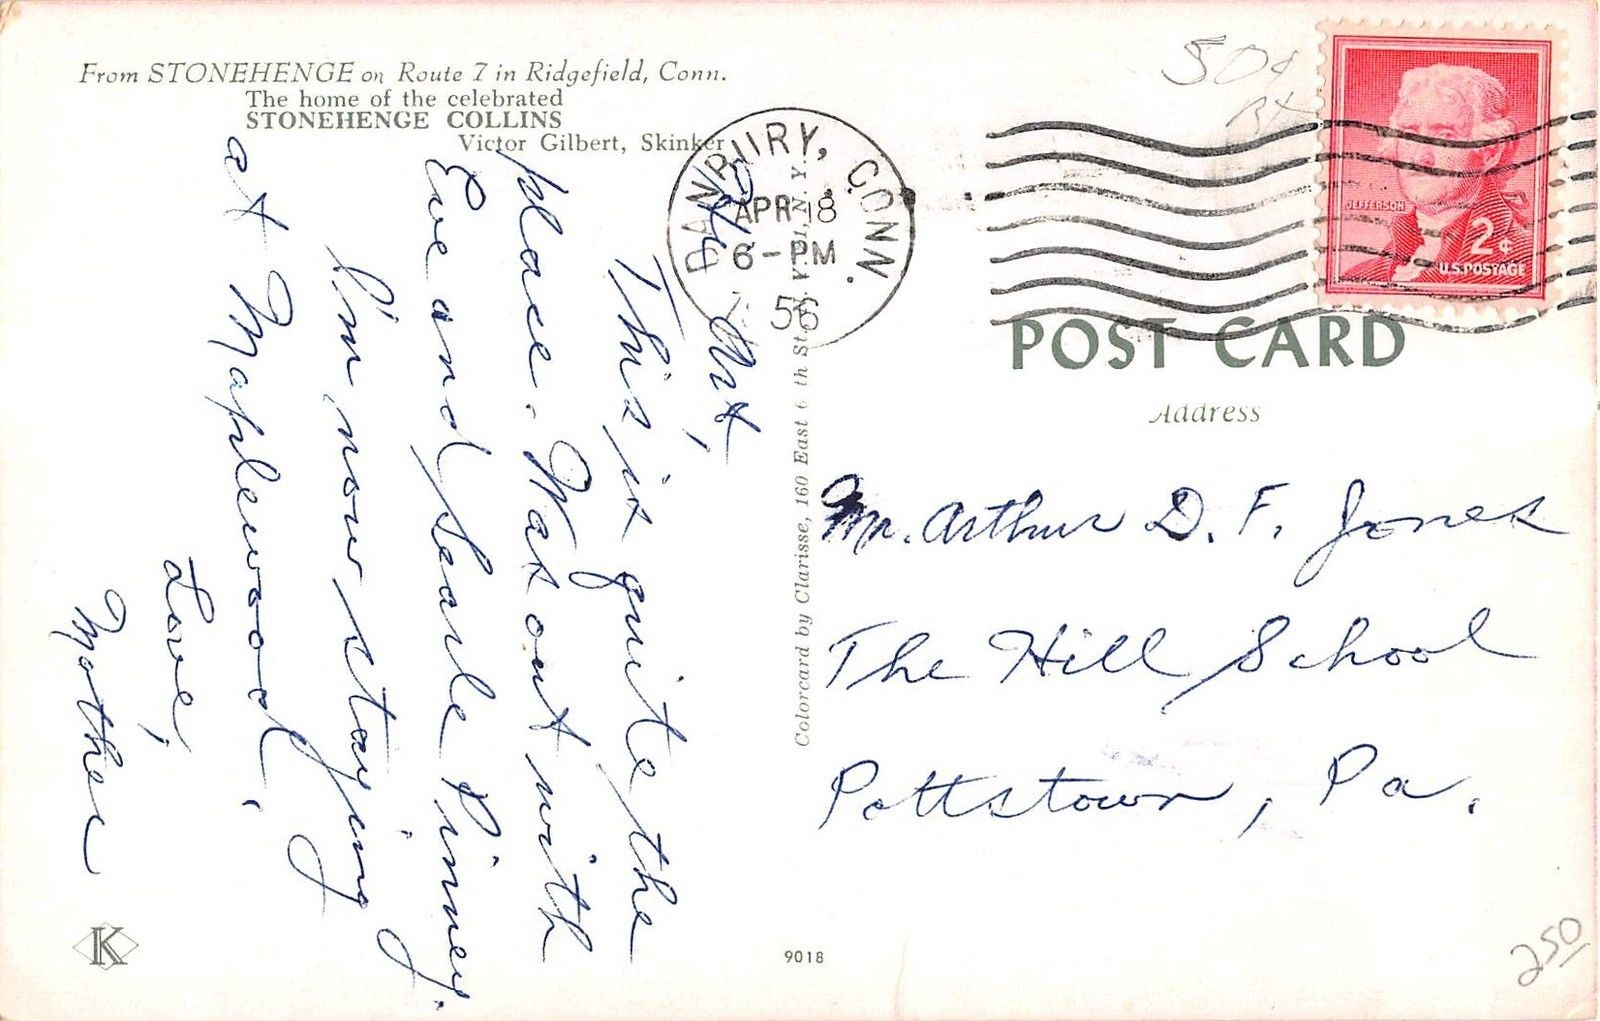 From STONEHENGE on Route 7 in Ridgefield, Conn.
The home of the celebrated
STONEHENGE COLLINS
Victor Gilbert, Skinker
Art,
This is quite the
place. Was out with
Eve and Searle Pinney.
I'm now staying
at Maplewood.
Love,
Mother
DANBURY, CONN.
APR 18
6-PM
56
50¢
JEFFERSON
2¢
U.S. POSTAGE
POST CARD
Address
Mr. Arthur D. F. Jones
The Hill School
Pottstown, Pa.
Colorcard by Clarisse, 160 East 6 th St., N. Y. 21, N. Y.
K
9018
250